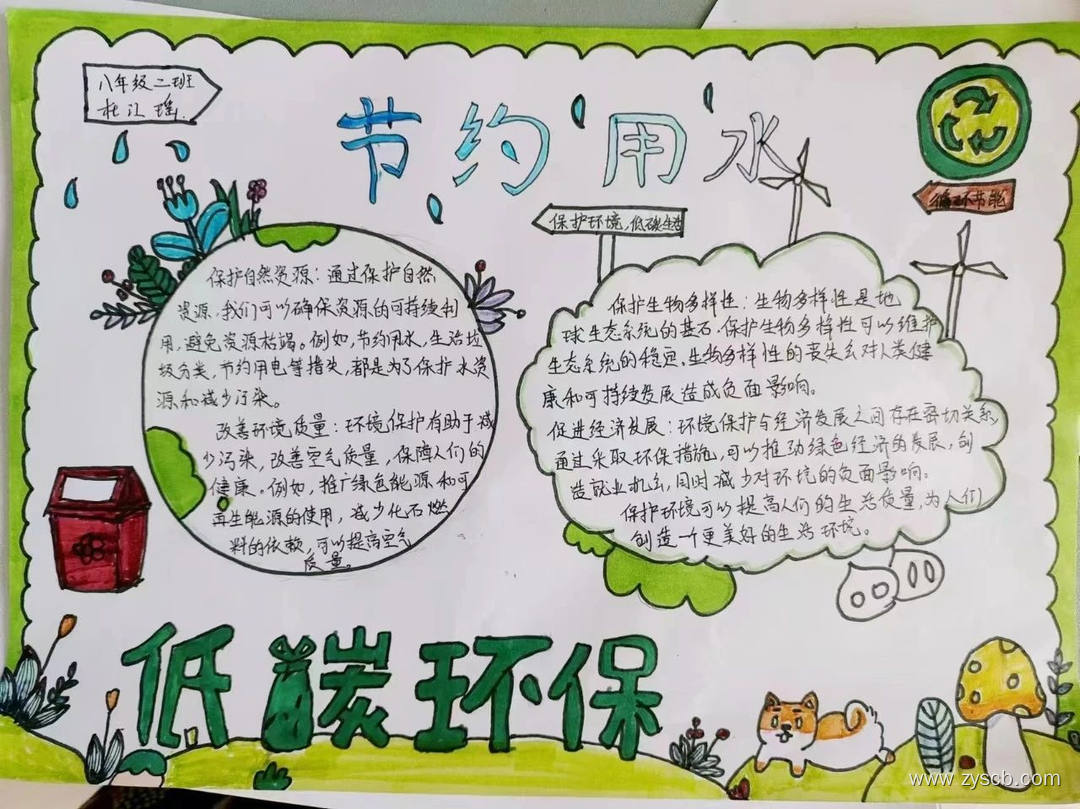 八年级二班
杜汇瑶
节约用水
循环节能
保护环境,低碳生活
保护自然资源:通过保护自然
资源,我们可以确保资源的可持续利
用,避免资源枯竭。例如,节约用水,生活垃
圾分类,节约用电等措失,都是为了保护水资
源和减少污染。
改善环境质量:环境保护有助于减
少污染,改善空气质量,保障人们的
健康。例如,推广绿色能源和可
再生能源的使用,减少化石燃
料的依赖,可以提高空气
质量。
保护生物多样性:生物多样性是地
球生态系统的基石.保护生物多样性可以维护
生态系统的稳定.生物多样性的丧失会对人类健
康和可持续发展造成负面影响。
促进经济发展:环境保护与经济发展之间存在密切关系.
通过采取环保措施,可以推动绿色经济的发展,创
造就业机会,同时减少对环境的负面影响。
保护环境可以提高人们的生活质量,为人们
创造一个更美好的生活环境。
低碳环保
www.zyscb.com